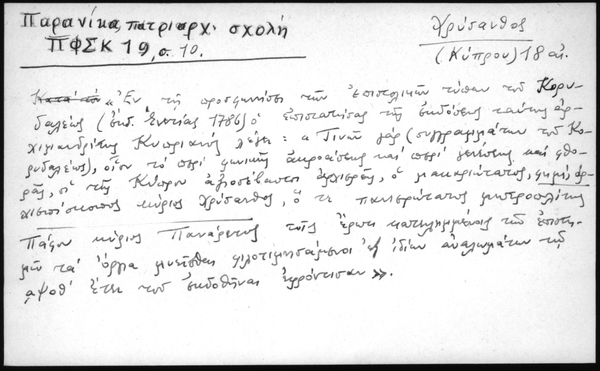 Παρανίκα, πατριαρχ. σχολή
ΠΦΣΚ 19, σ. 10.
Χρύσανθος
(Κύπρου) 18 αι.
«Ἐν τῇ προσφωνήσει τῶν ἐπιστολικῶν τύπων τοῦ Κορυ-
δαλέως (ἐκδ. Ἑνετίας 1786) ὁ ἐπιστατήσας τῆς ἐκδόσεως ταύτης ἀρ-
χιμανδρίτης Κυπριανός λέγει: «Τινῶν γάρ (συγγραμμάτων τοῦ Κο-
ρυδαλέως), οἷον τό περί φυσικῆς ἀκροάσεως καί περί γενέσεως καί φθο-
ρᾶς, οἱ τῆς Κύπρου ἀξιοσέβαστοι ἀρχιερεῖς, ὁ μακαριώτατος, φημί, ἀρ-
χιεπίσκοπος κύριος Χρύσανθος, ὅ τε πανιερώτατος μητροπολίτης
Πάφου κύριος Πανάρετος τοῖς ἔρωτι κατειλημμένοις τῶν ἐπιστη-
μῶν τά ὄργια μυεῖσθαι φιλοτιμησάμενοι ἐξ ἰδίων ἀναλωμάτων τῆς
ἔτι τοῦ ἐκδοθῆναι ἐφρόντισαν».